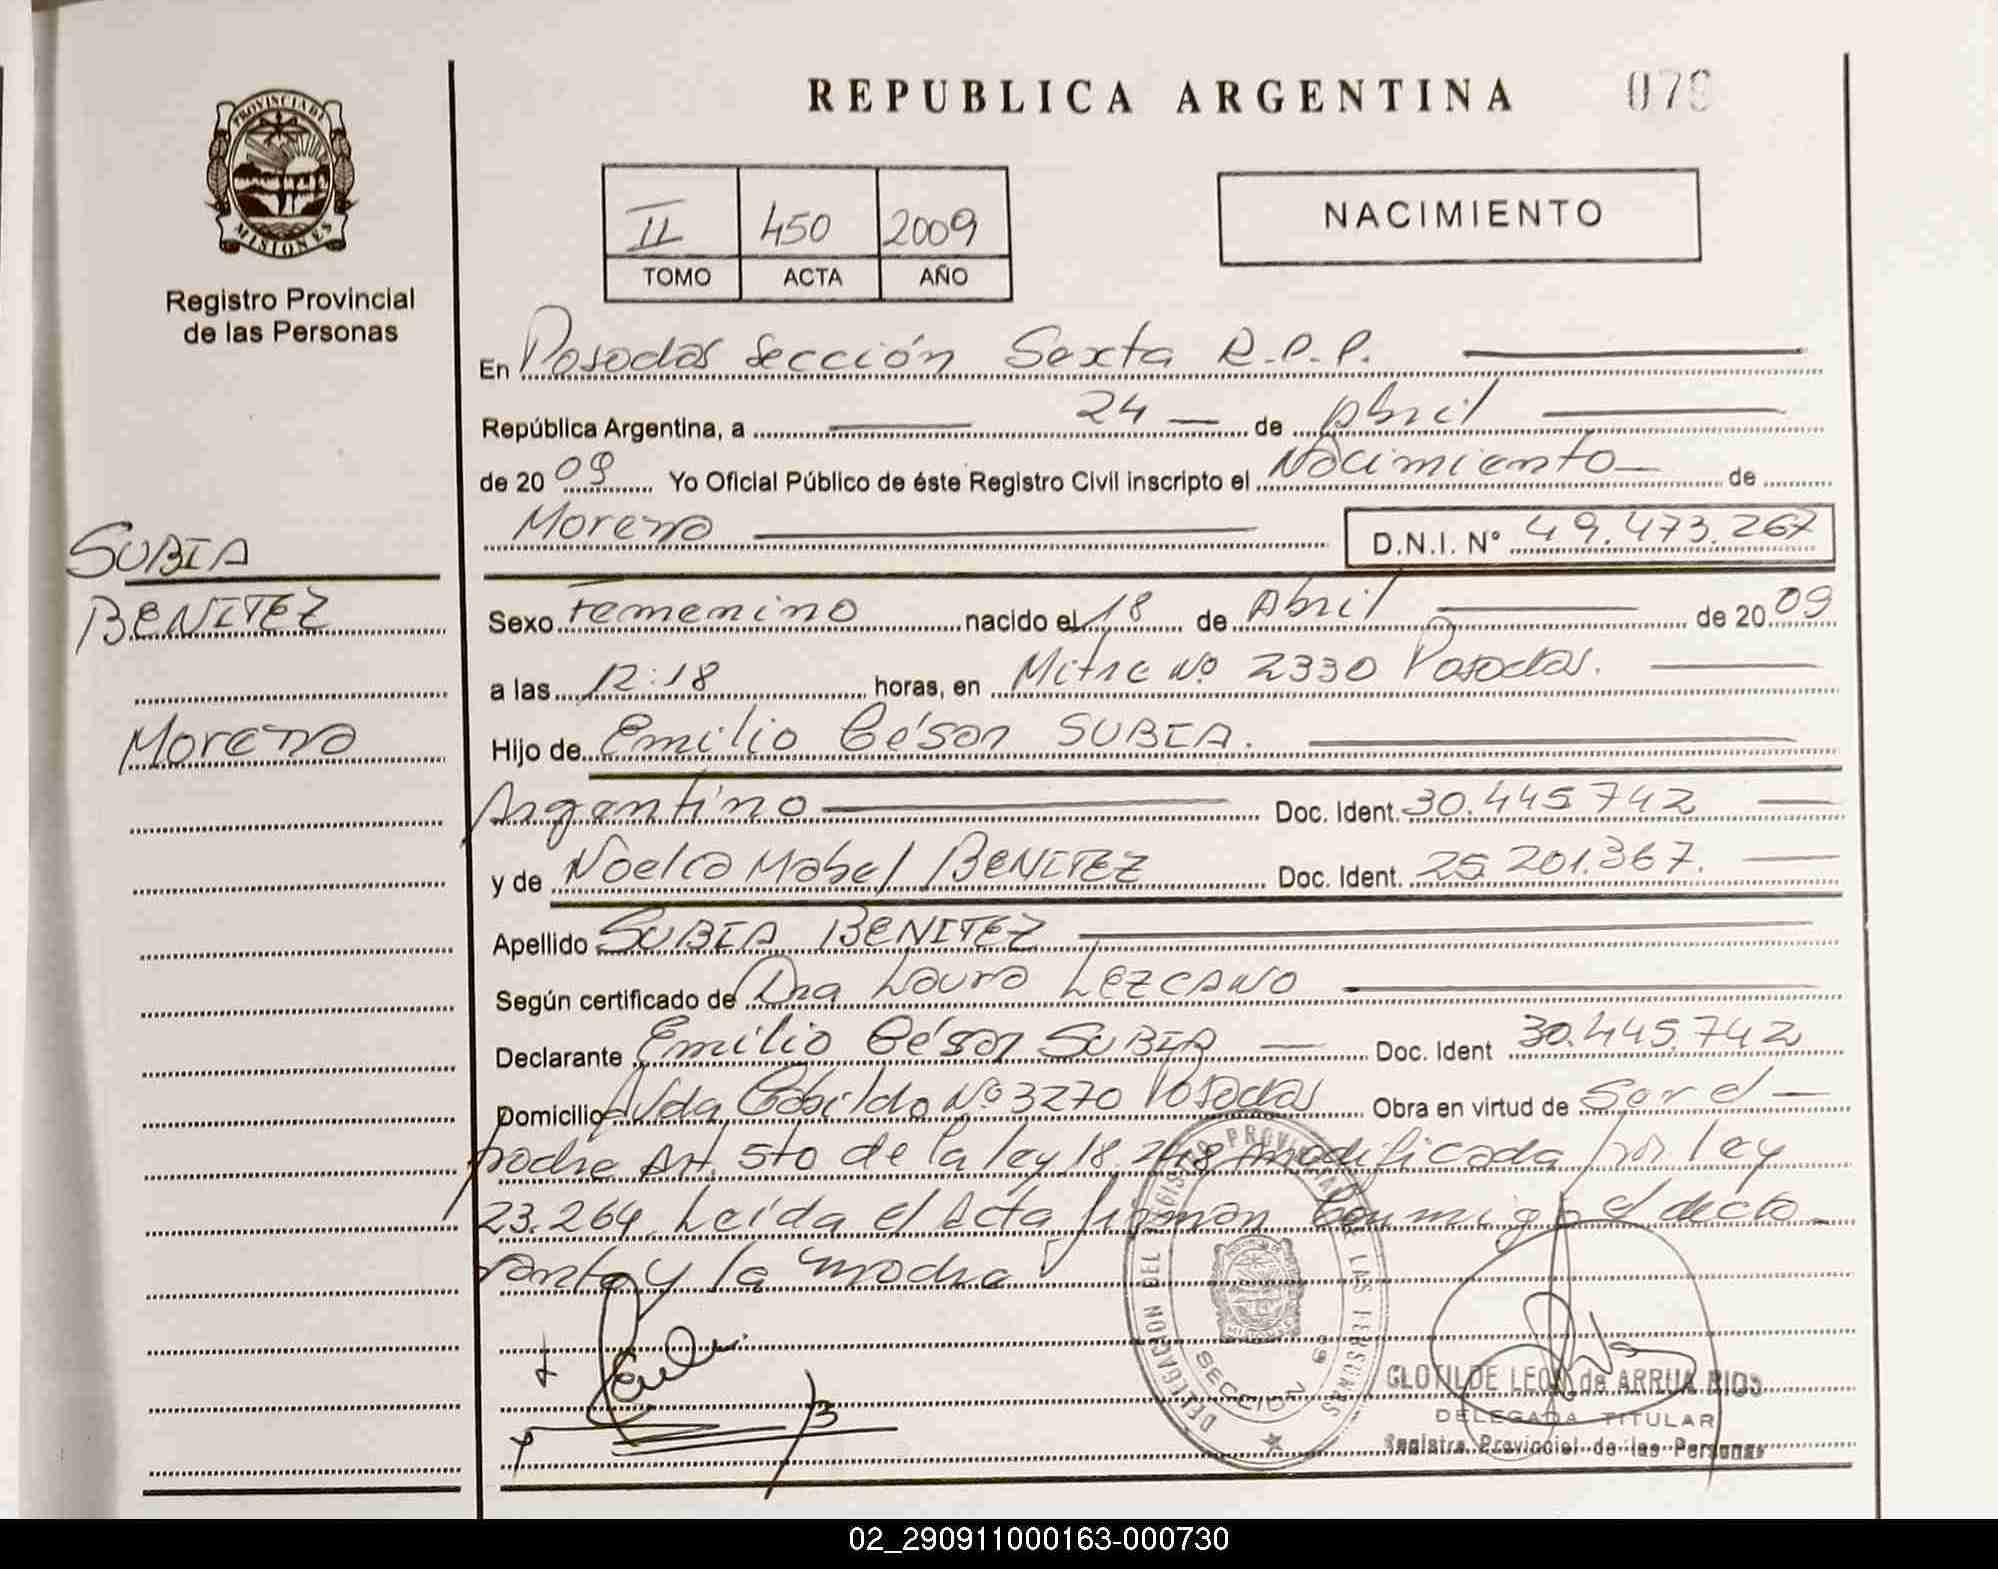 PROVINCIA DE
MISIONES
Registro Provincial
de las Personas
SUBIA
BENITEZ
Morena
REPUBLICA ARGENTINA 079
II 450 2009
TOMO ACTA AÑO
NACIMIENTO
En Posadas Sección Sexta R.P.P.
República Argentina, a 24 de Abril
de 2009 Yo Oficial Público de éste Registro Civil inscripto el Nacimiento de
Morena D.N.I. Nº 49.473.267
Sexo Femenino nacido el 18 de Abril de 2009
a las 12:18 horas, en Mitre Nº 2330 Posadas.
Hijo de Emilio César SUBIA.
Argentino Doc. Ident. 30.445742
y de Noelia Mabel BENITEZ Doc. Ident. 25.201.367.
Apellido SUBIA BENITEZ
Según certificado de Dra Laura LEZCANO
Declarante Emilio César SUBIA Doc. Ident 30.445.742
Domicilio Avda Cabildo Nº 3270 Posadas Obra en virtud de Ser el
padre Art. 5to de la ley 18.248 modificada por ley
23.264. Leída el Acta firman Conmigo el decla
rante y la madre
DELEGACION DEL REGISTRO PROVINCIAL DE LAS PERSONAS
MISIONES
SECCION 6º
CLOTILDE LEON de ARRUA RIOS
DELEGADA TITULAR
Registro Provincial de las Personas
02_290911000163-000730